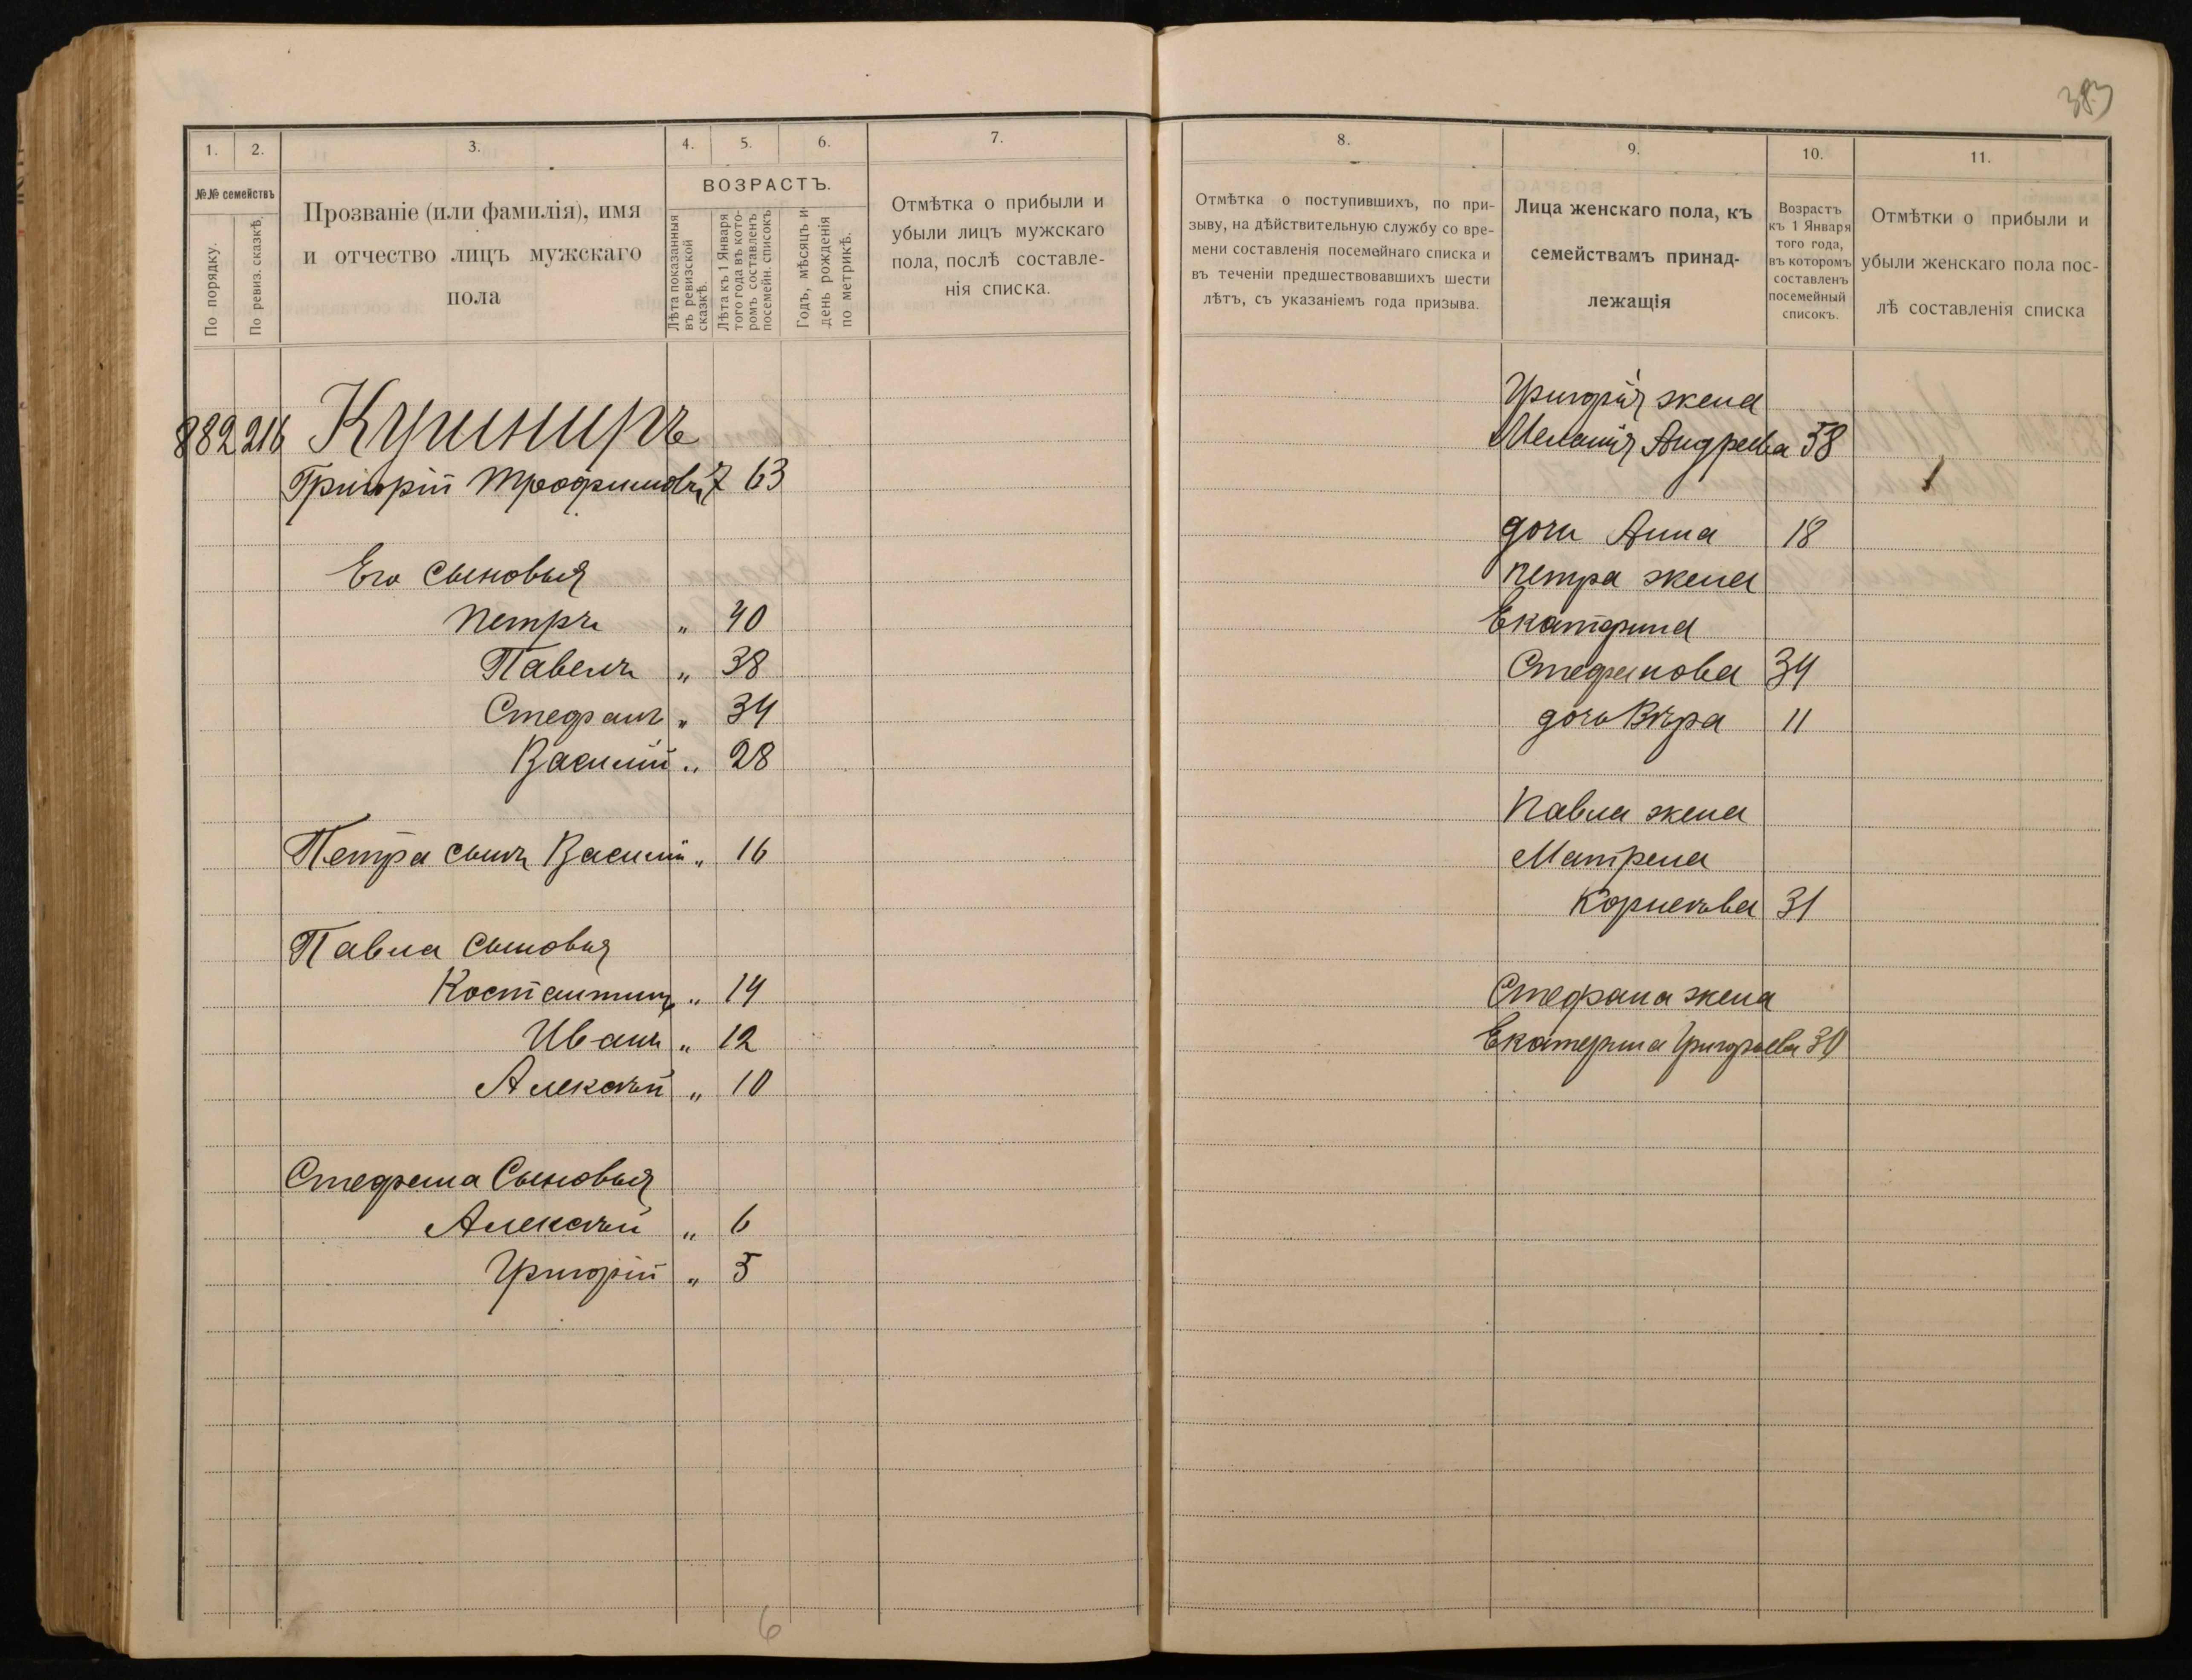 383
1.
2.
3.
4.
5.
6.
7.
№№ семействъ
По порядку.
По ревиз. сказкѣ.
Прозваніе (или фамилія), имя
и отчество лицъ мужскаго
пола
ВОЗРАСТЪ.
Лѣта показанныя
въ ревизской
сказкѣ.
Лѣта къ 1 Января
того года въ кото-
ромъ составленъ
посемейн. списокъ
Годъ, мѣсяцъ и
день рожденія
по метрикѣ.
Отмѣтка о прибыли и
убыли лицъ мужскаго
пола, послѣ составле-
нія списка.
882 216 Кушниръ
Григорій Трофимовъ 7 63
Его сыновья
Петръ " 40
Павелъ " 38
Стефанъ " 34
Василій " 28
Петра сынъ Василій " 16
Павла сыновья
Костантинъ " 14
Иванъ " 12
Алексѣй " 10
Стефана Сыновья
Алексѣй " 6
Григорій " 5
6
8.
9.
10.
11.
Отмѣтка о поступившихъ, по при-
зыву, на дѣйствительную службу со вре-
мени составленія посемейнаго списка и
въ теченіи предшествовавшихъ шести
лѣтъ, съ указаніемъ года призыва.
Лица женскаго пола, къ
семействамъ принад-
лежащія
Возрастъ
къ 1 Января
того года,
въ которомъ
составленъ
посемейный
списокъ.
Отмѣтки о прибыли и
убыли женскаго пола пос-
лѣ составленія списка
Григорія жена
Меланія Андреева 58
дочь Анна 18
Петра жена
Екатерина
Стефанова 34
дочь Вѣра 11
Павла жена
Матрена
Корнеева 31
Стефана жена
Екатерина Григорьева 30